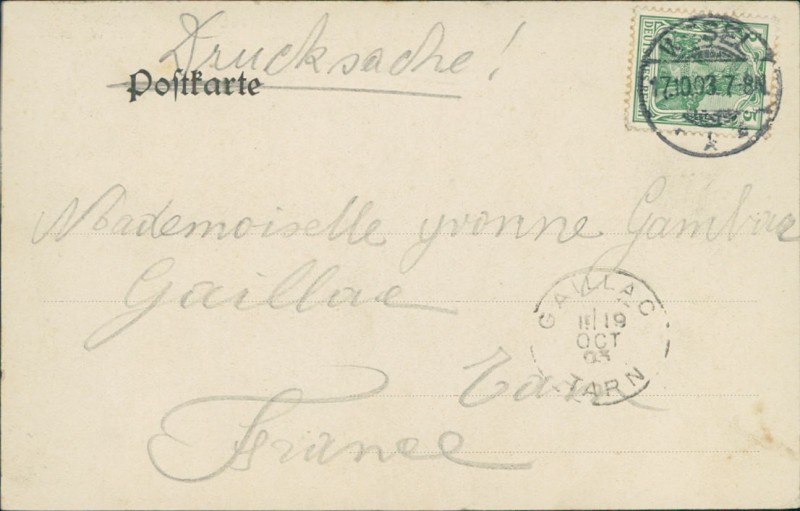 Drucksache!
Postkarte
DEUTSCHES
5
17.10.03.7-8N.
Mademoiselle Yvonne
Gaillac
GAILLAC
19
OCT
03
TARN
Tarn
France